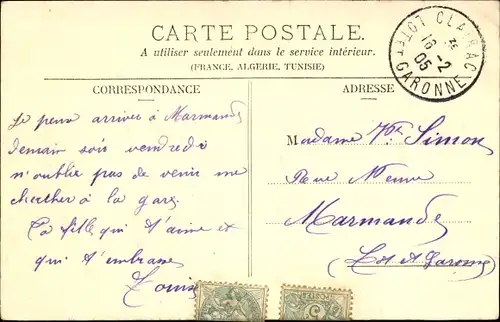 CARTE POSTALE.
A utiliser seulement dans le service intérieur.
(FRANCE, ALGERIE, TUNISIE)
CORRESPONDANCE
ADRESSE
CLAIRAC
LOT ET GARONNE
16 -2
05
Je pense arriver à Marmande
demain soir vendredi
n'oublie pas de venir me
chercher à la gare.
Ta fille qui t'aime et
qui t'embrasse
Louise
Madame Vve Simon
Rue Neuve
Marmande
(Lot et Garonne)
POSTES